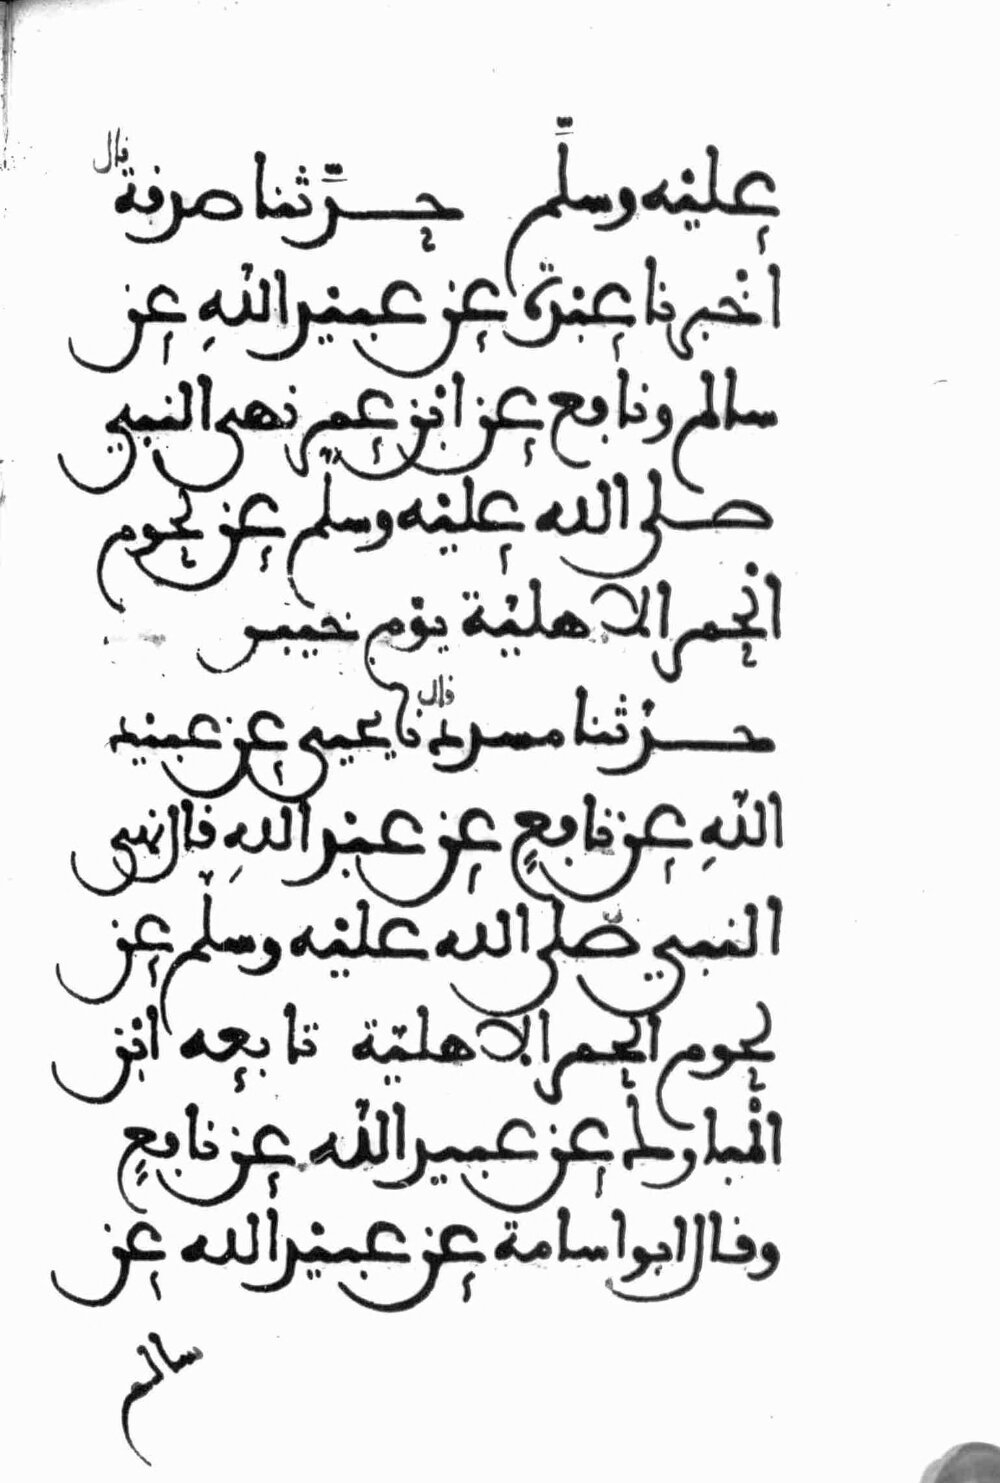 عليه وسلم حدثنا صدقة قال
اخبرنا عبدة عن عبيد الله عن
سالم ونافع عن ابن عمر نهى النبي
صلى الله عليه وسلم عن لحوم
الحمر الاهلية يوم خيبر
حدثنا مسدد قال نا يحيى عن عبيد
الله عن نافع عن عبد الله قال نهى
النبي صلى الله عليه وسلم عن
لحوم الحمر الاهلية تابعه ابن
المبارك عن عبيد الله عن نافع
وقال ابو اسامة عن عبيد الله عن
سالم